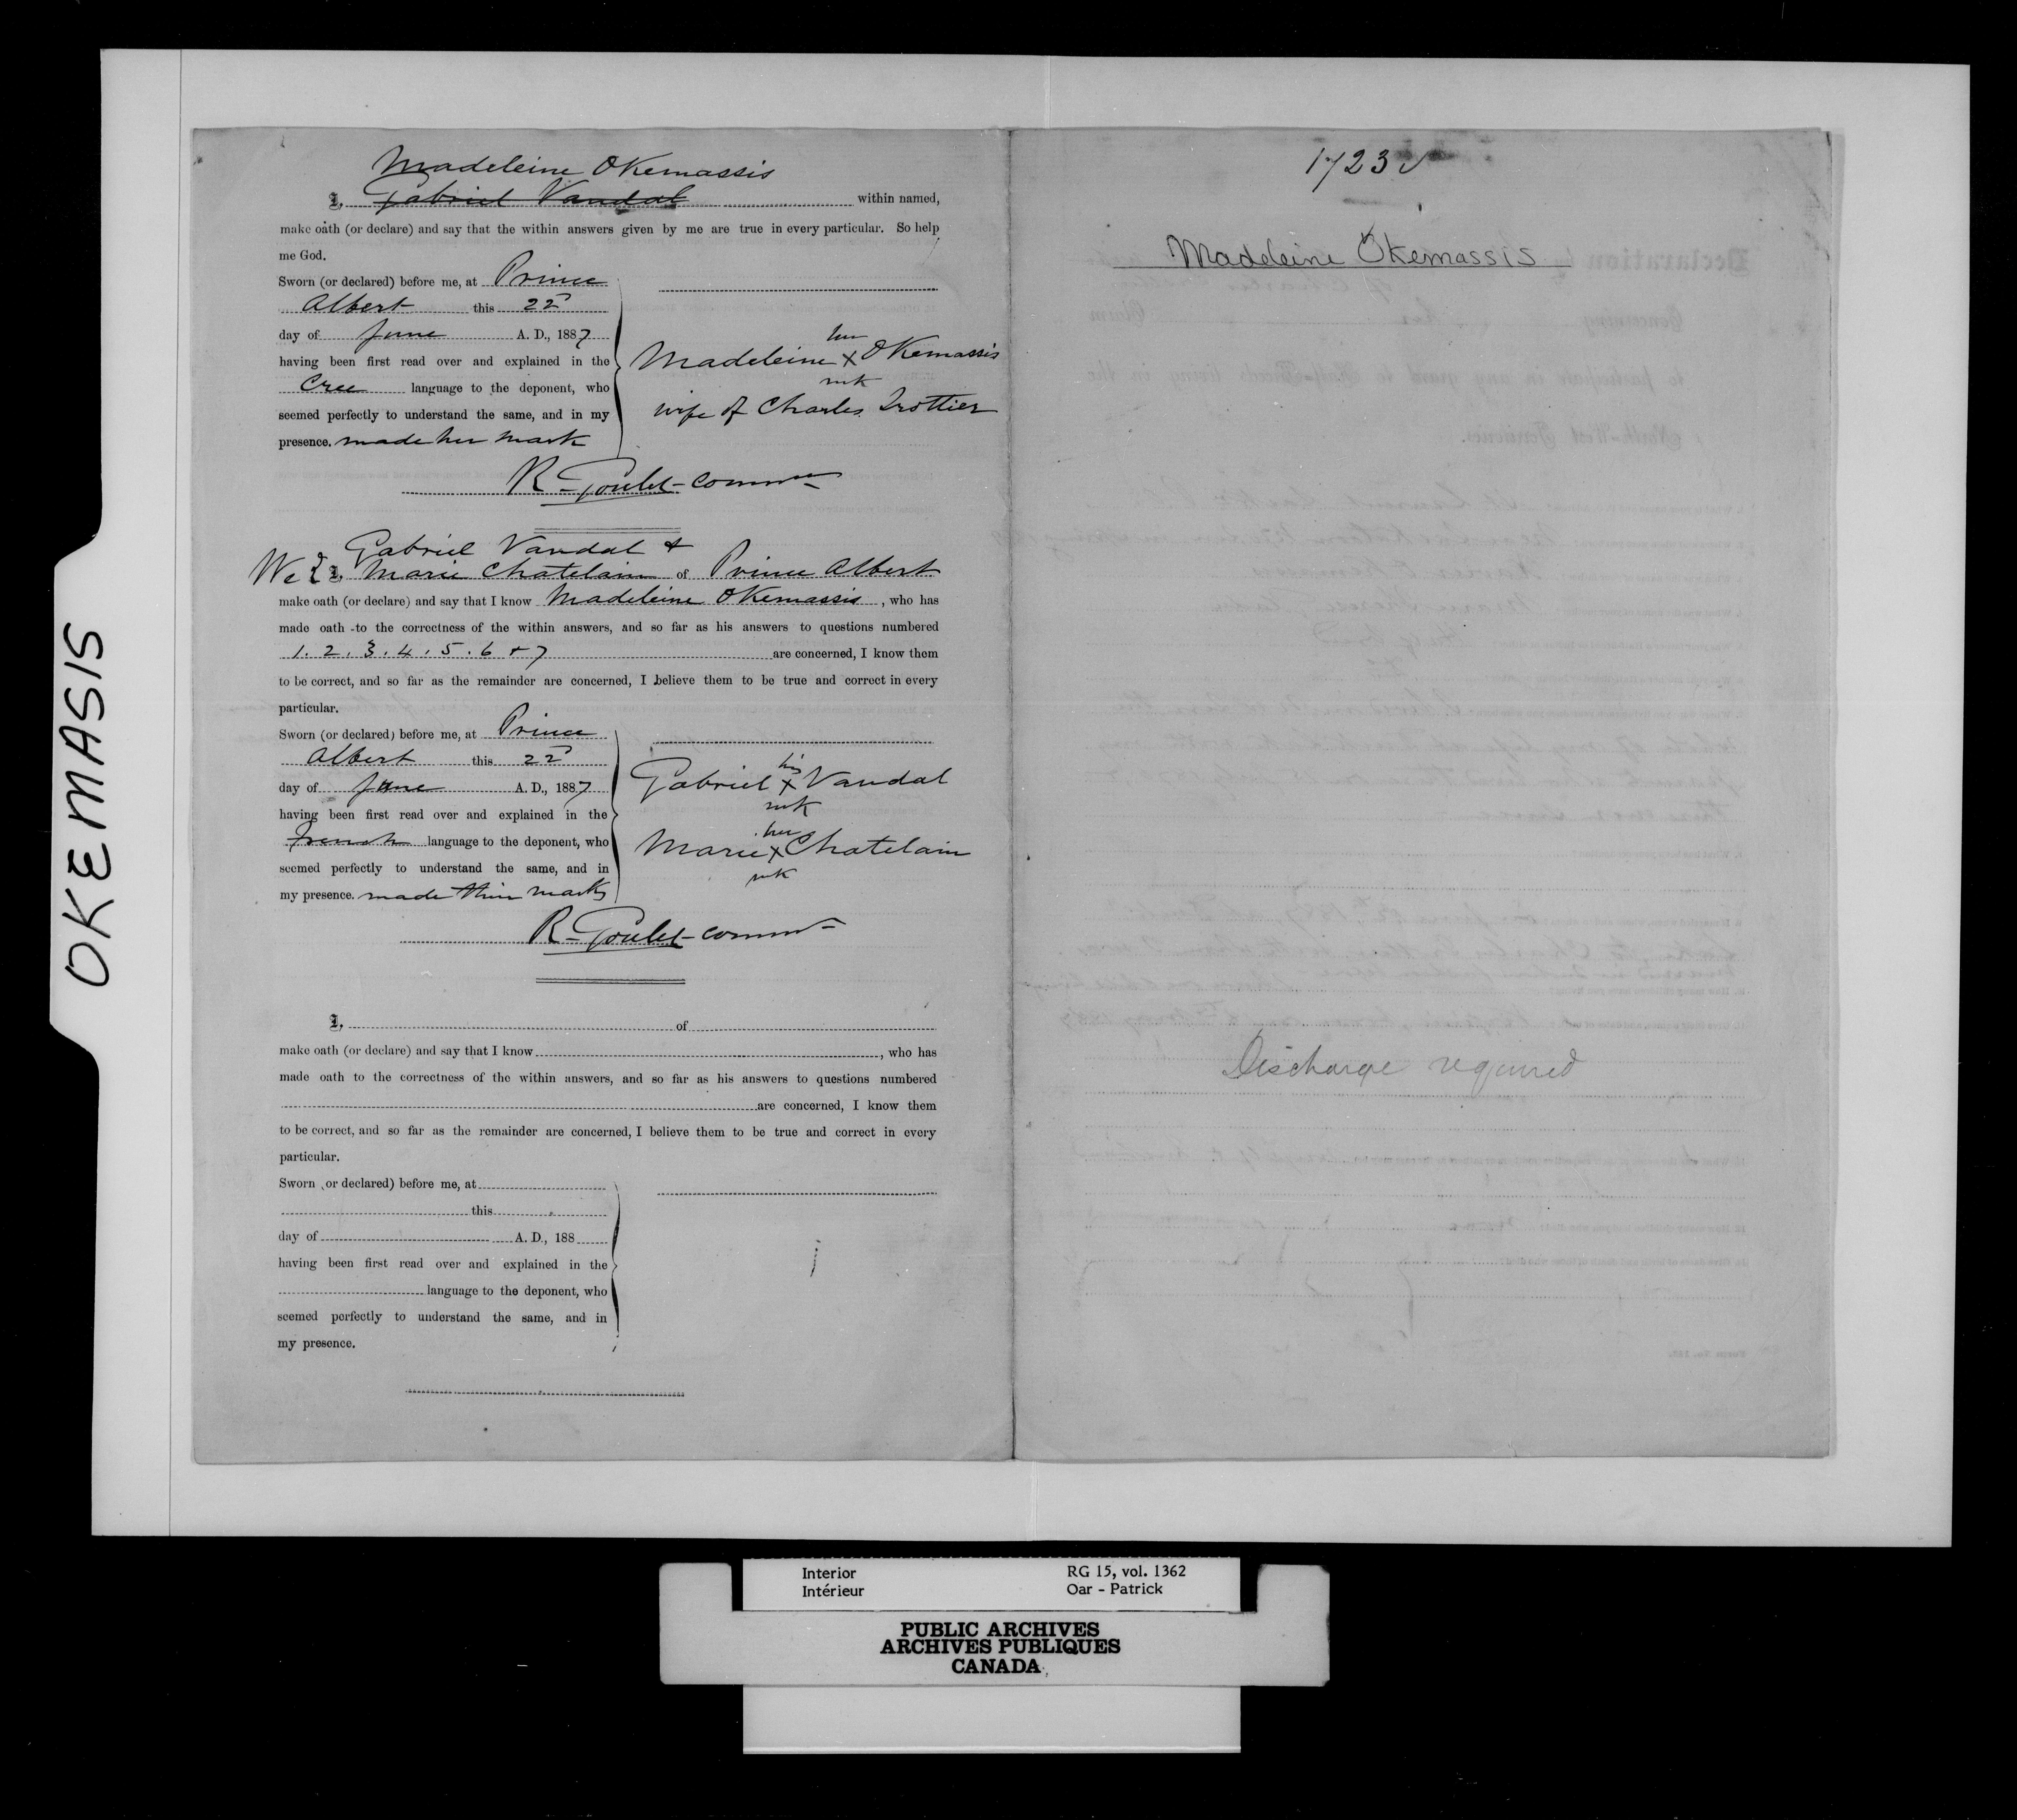 OKEMASIS
Madeleine OKemassis
I, Gabriel Vandal within named,
make oath (or declare) and say that the within answers given by me are true in every particular. So help
me God.
Sworn (or declared) before me, at Prince
Albert this 22d
day of June A. D., 1887
having been first read over and explained in the
Cree language to the deponent, who
seemed perfectly to understand the same, and in my
presence. made her mark
her
Madeleine X OKemassis
mk
wife of Charles Trottier
R. Goulet - commr
Gabriel Vandal &
We I, Marie Chatelain of Prince Albert
make oath (or declare) and say that I know Madeleine OKemassis, who has
made oath to the correctness of the within answers, and so far as his answers to questions numbered
1. 2. 3. 4. 5. 6 & 7 are concerned, I know them
to be correct, and so far as the remainder are concerned, I believe them to be true and correct in every
particular.
Sworn (or declared) before me, at Prince
Albert this 22d
day of June A. D., 1887
having been first read over and explained in the
French language to the deponent, who
seemed perfectly to understand the same, and in
my presence. made their marks
his
Gabriel X Vandal
mk
her
Marie X Chatelain
mk
R. Goulet - commr
I, of
make oath (or declare) and say that I know , who has
made oath to the correctness of the within answers, and so far as his answers to questions numbered
are concerned, I know them
to be correct, and so far as the remainder are concerned, I believe them to be true and correct in every
particular.
Sworn (or declared) before me, at
this
day of A. D., 188
having been first read over and explained in the
language to the deponent, who
seemed perfectly to understand the same, and in
my presence.
1723
Madeleine Okemassis
Discharge required
Interior RG 15, vol. 1362
Intérieur Oar - Patrick
PUBLIC ARCHIVES
ARCHIVES PUBLIQUES
CANADA